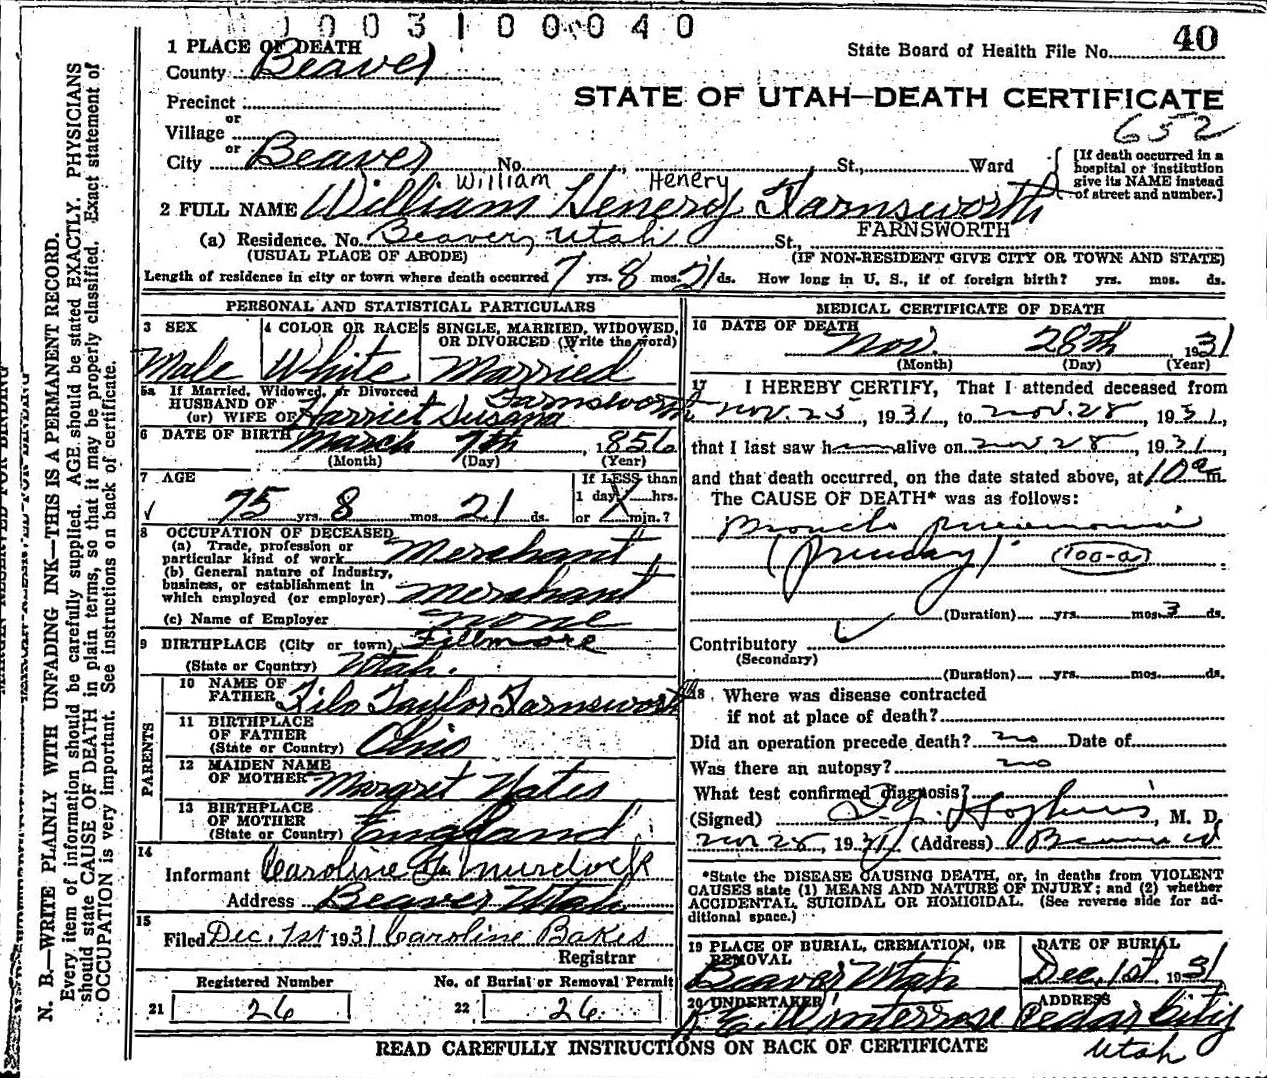 1003100040
40
State Board of Health File No.
1 PLACE OF DEATH
County Beaver
STATE OF UTAH—DEATH CERTIFICATE
Precinct
or
Village
652
or
City Beaver No. St., Ward
[If death occurred in a
hospital or institution
give its NAME instead
of street and number.]
William Henery
2 FULL NAME William Henery Farnsworth
FARNSWORTH
(a) Residence. No. Beaver, Utah St.,
(USUAL PLACE OF ABODE) (IF NON-RESIDENT GIVE CITY OR TOWN AND STATE)
Length of residence in city or town where death occurred 7 yrs. 8 mos. 21 ds. How long in U. S., if of foreign birth? yrs. mos. ds.
PERSONAL AND STATISTICAL PARTICULARS
3 SEX 4 COLOR OR RACE 5 SINGLE, MARRIED, WIDOWED, OR DIVORCED (Write the word)
Male White Married
5a If Married, Widowed, or Divorced
HUSBAND OF
(or) WIFE OF Harriet Susana Farnsworth
6 DATE OF BIRTH March 7th, 1856
(Month) (Day) (Year)
7 AGE If LESS than
1 day, hrs.
75 yrs. 8 mos. 21 ds. or min.?
8 OCCUPATION OF DECEASED
(a) Trade, profession or
particular kind of work Merchant
(b) General nature of Industry,
business, or establishment in
which employed (or employer) Merchant
(c) Name of Employer None
9 BIRTHPLACE (City or town) Fillmore
(State or Country) Utah.
PARENTS
10 NAME OF
FATHER Filo Taylor Farnsworth
11 BIRTHPLACE
OF FATHER
(State or Country) Ohio
12 MAIDEN NAME
OF MOTHER Margret Yates
13 BIRTHPLACE
OF MOTHER
(State or Country) England
14
Informant Caroline F. Murdock
Address Beaver Utah
15
Filed Dec. 1st 1931 Caroline Bakes
Registrar
Registered Number No. of Burial or Removal Permit
21 26 22 26
MEDICAL CERTIFICATE OF DEATH
16 DATE OF DEATH
Nov. 28th 1931
(Month) (Day) (Year)
17 I HEREBY CERTIFY, That I attended deceased from
Nov. 23, 1931, to Nov. 28, 1931,
that I last saw h alive on Nov 28, 1931
and that death occurred, on the date stated above, at 10 a m.
The CAUSE OF DEATH* was as follows:
Broncho pneumonia
(primary) (100-a)
(Duration) yrs. mos. 3 ds.
Contributory
(Secondary)
(Duration) yrs. mos. ds.
18 Where was disease contracted
if not at place of death?
Did an operation precede death? no Date of
Was there an autopsy? no
What test confirmed diagnosis?
(Signed) M. D.
Nov 28, 1931 (Address) Beaver U
*State the DISEASE CAUSING DEATH, or, in deaths from VIOLENT
CAUSES state (1) MEANS AND NATURE OF INJURY; and (2) whether
ACCIDENTAL, SUICIDAL OR HOMICIDAL. (See reverse side for ad-
ditional space.)
19 PLACE OF BURIAL, CREMATION, OR
REMOVAL
Beaver Utah
DATE OF BURIAL
Dec, 1st 1931
20 UNDERTAKER ADDRESS
R. E. Winterrose Cedar City
Utah
READ CAREFULLY INSTRUCTIONS ON BACK OF CERTIFICATE
N. B.—WRITE PLAINLY WITH UNFADING INK—THIS IS A PERMANENT RECORD.
Every item of information should be carefully supplied. AGE should be stated EXACTLY. PHYSICIANS
should state CAUSE OF DEATH in plain terms, so that it may be properly classified. Exact statement of
OCCUPATION is very important. See instructions on back of certificate.